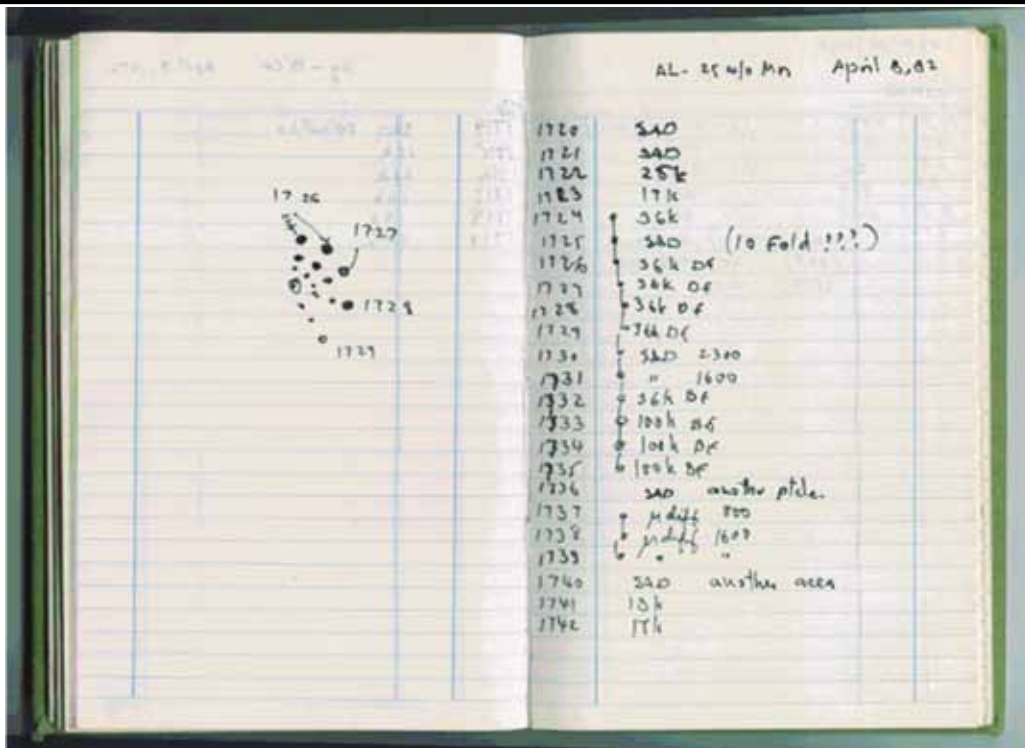 1726
1727
1728
1729
AL-25 w/o Mn April 8,82
1720 SAD
1721 SAD
1722 25k
1723 17k
1724 36k
1725 SAD (10 Fold !??)
1726 36k DF
1727 36k DF
1728 36k DF
1729 36k DF
1730 SAD 2300
1731 " 1600
1732 36k BF
1733 100k BF
1734 100k DF
1735 100k BF
1736 SAD another ptcle.
1737 μdiff 800
1738 μdiff 1600
1739 " "
1740 SAD another area
1741 13k
1742 17k